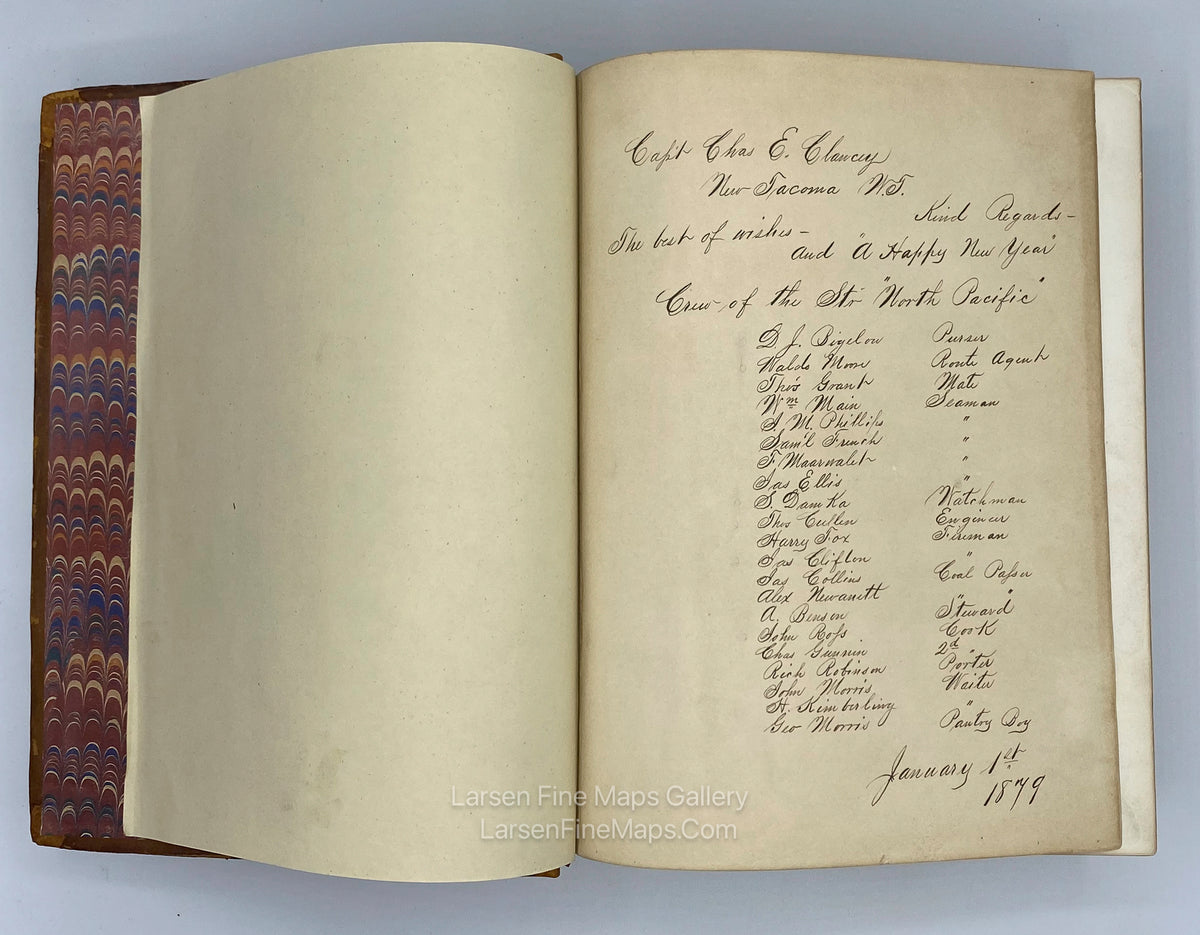 Capt Chas E. Clancey
New Tacoma W.T.
Kind Regards-
The best of wishes-
and "A Happy New Year"
Crew of the Str "North Pacific"
D. J. Bigelow Purser
Waldo Moore Route Agent
Thos Grant Mate
Wm Main Seaman
J. M. Phillips "
Sam'l French "
F. Maarwalet "
Jas Ellis "
S. Damka Watchman
Thos Cullen Engineer
Harry Fox Fireman
Jas Clifton "
Jas Collins Coal Passer
Alex Newanett "
A. Benson "Steward
John Ross Cook
Chas Gunnin 2d "
Rich Robinson Porter
John Morris Waiter
H. Kimberling "
Geo Morris Pantry Boy
January 1st
1879
Larsen Fine Maps Gallery
LarsenFineMaps.Com